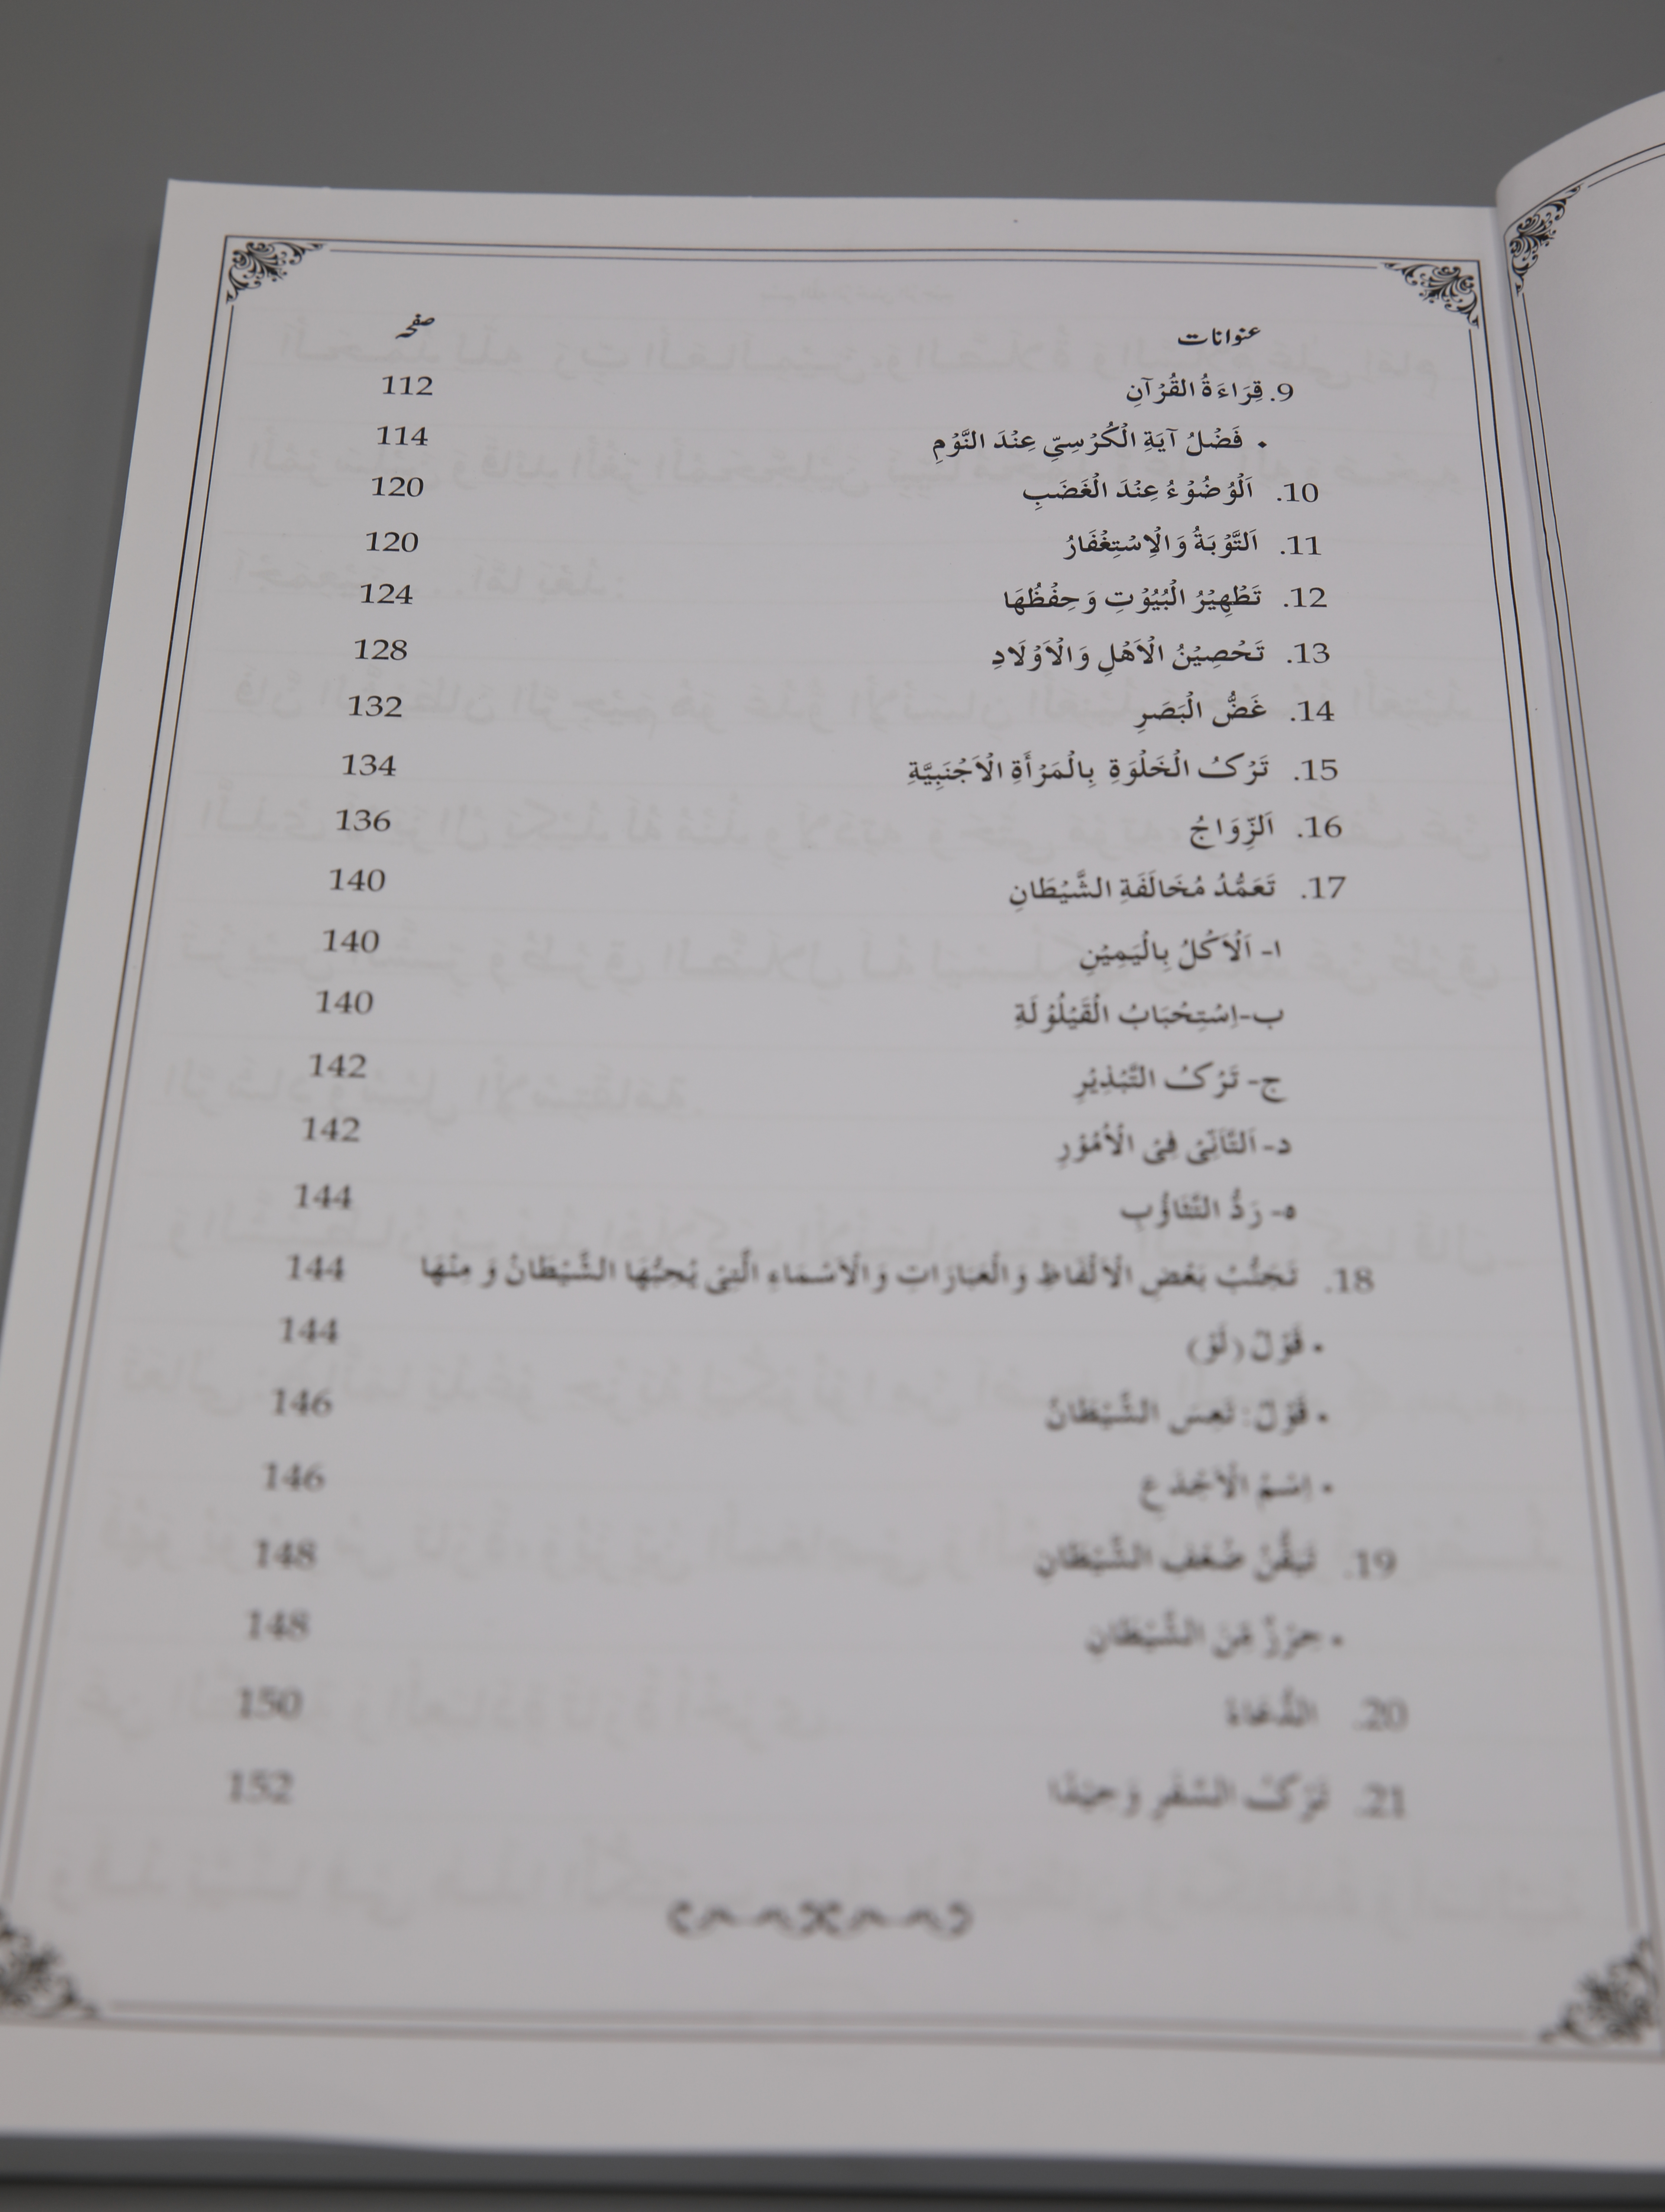 عنوانات صفحہ
9. قِرَاءَةُ الْقُرْآنِ 112
• فَضْلُ آيَةِ الْكُرْسِيِّ عِنْدَ النَّوْمِ 114
10. اَلْوُضُوْءُ عِنْدَ الْغَضَبِ 120
11. اَلتَّوْبَةُ وَالْاِسْتِغْفَارُ 120
12. تَطْهِيْرُ الْبُيُوْتِ وَحِفْظُهَا 124
13. تَحْصِيْنُ الْاَهْلِ وَالْاَوْلَادِ 128
14. غَضُّ الْبَصَرِ 132
15. تَرْكُ الْخَلْوَةِ بِالْمَرْأَةِ الْاَجْنَبِيَّةِ 134
16. اَلزِّوَاجُ 136
17. تَعَمُّدُ مُخَالَفَةِ الشَّيْطَانِ 140
ا- اَلْاَكْلُ بِالْيَمِيْنِ 140
ب-اِسْتِحْبَابُ الْقَيْلُوْلَةِ 140
ج- تَرْكُ التَّبْذِيْرِ 142
د- اَلتَّاَنِّيْ فِي الْاُمُوْرِ 142
ه- رَدُّ التَّثَاؤُبِ 144
18. تَجَنُّبُ بَعْضِ الْاَلْفَاظِ وَالْعَبَارَاتِ وَالْاَسْمَاءِ الَّتِيْ يُحِبُّهَا الشَّيْطَانُ وَ مِنْهَا 144
• قَوْلُ (لَوْ) 144
• قَوْلُ: تَعِسَ الشَّيْطَانُ 146
• اِسْمُ الْاَجْدَعِ 146
19. تَيَقُّنُ ضُعْفِ الشَّيْطَانِ 148
• حِرْزٌ مِّنَ الشَّيْطَانِ 148
20. الدُّعَاءُ 150
21. تَرْكُ السَّفَرِ وَحِيْدًا 152